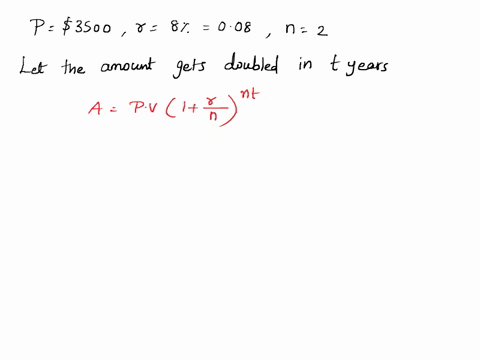 P = $3500 , r = 8% = 0.08 , n = 2
Let the amount gets doubled in t years
A = P.V (1 + r/n)^nt